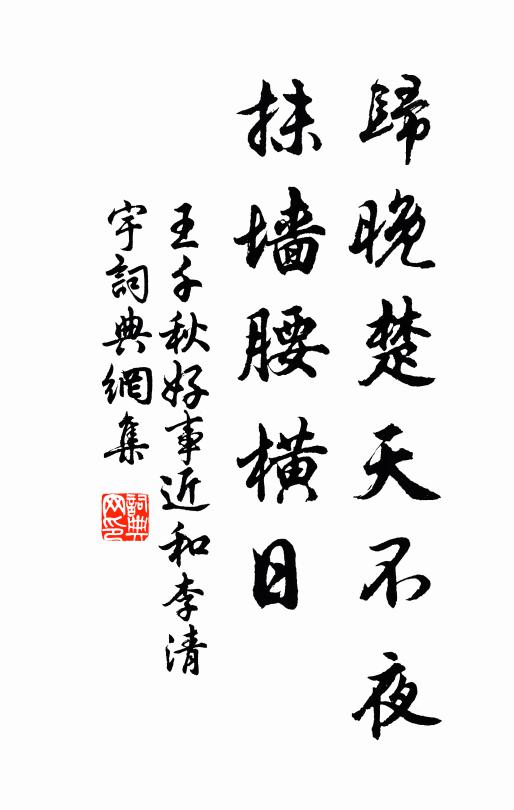 歸晚楚天不夜
抹墙腰橫日
王千秋好事近和李清
宇詞典網集
詞典网印